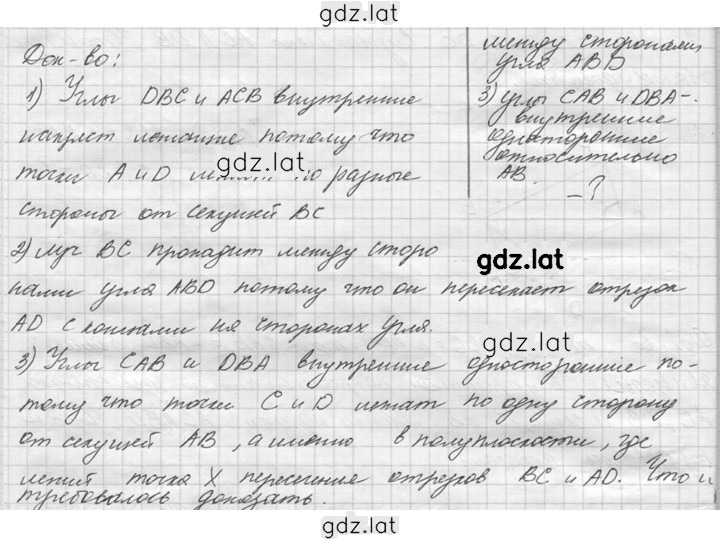 gdz.lat
между сторонами
угла ABD
3) углы CAB и DBA -
внутренние
односторонние
относительно
AB.
— ?
Док-во:
1) Углы DBC и ACB внутренние
накрест лежащие потому что
точки A и D по разные
gdz.lat
стороны от секущей BC
2) луч BC проходит между сторо
нами угла ABD потому что он пересекает отрезок
gdz.lat
AD с концами на сторонах угла.
3) Углы CAB и DBA внутренние односторонние по-
тому что точки C и D лежат по одну сторону
от секущей AB, а именно в полуплоскости, где
лежит точка X пересечение отрезков BC и AD. Что и
требовалось доказать.
gdz.lat